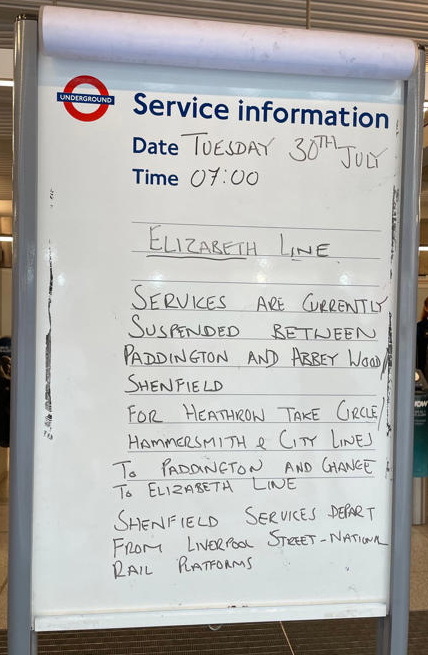 UNDERGROUND
Service information
Date TUESDAY 30TH JULY
Time 07:00
ELIZABETH LINE
SERVICES ARE CURRENTLY
SUSPENDED BETWEEN
PADDINGTON AND ABBEY WOOD/
SHENFIELD
FOR HEATHROW TAKE CIRCLE/
HAMMERSMITH & CITY LINES
To PADDINGTON AND CHANGE
To ELIZABETH LINE
SHENFIELD SERVICES DEPART
FROM LIVERPOOL STREET-NATIONAL
RAIL PLATFORMS